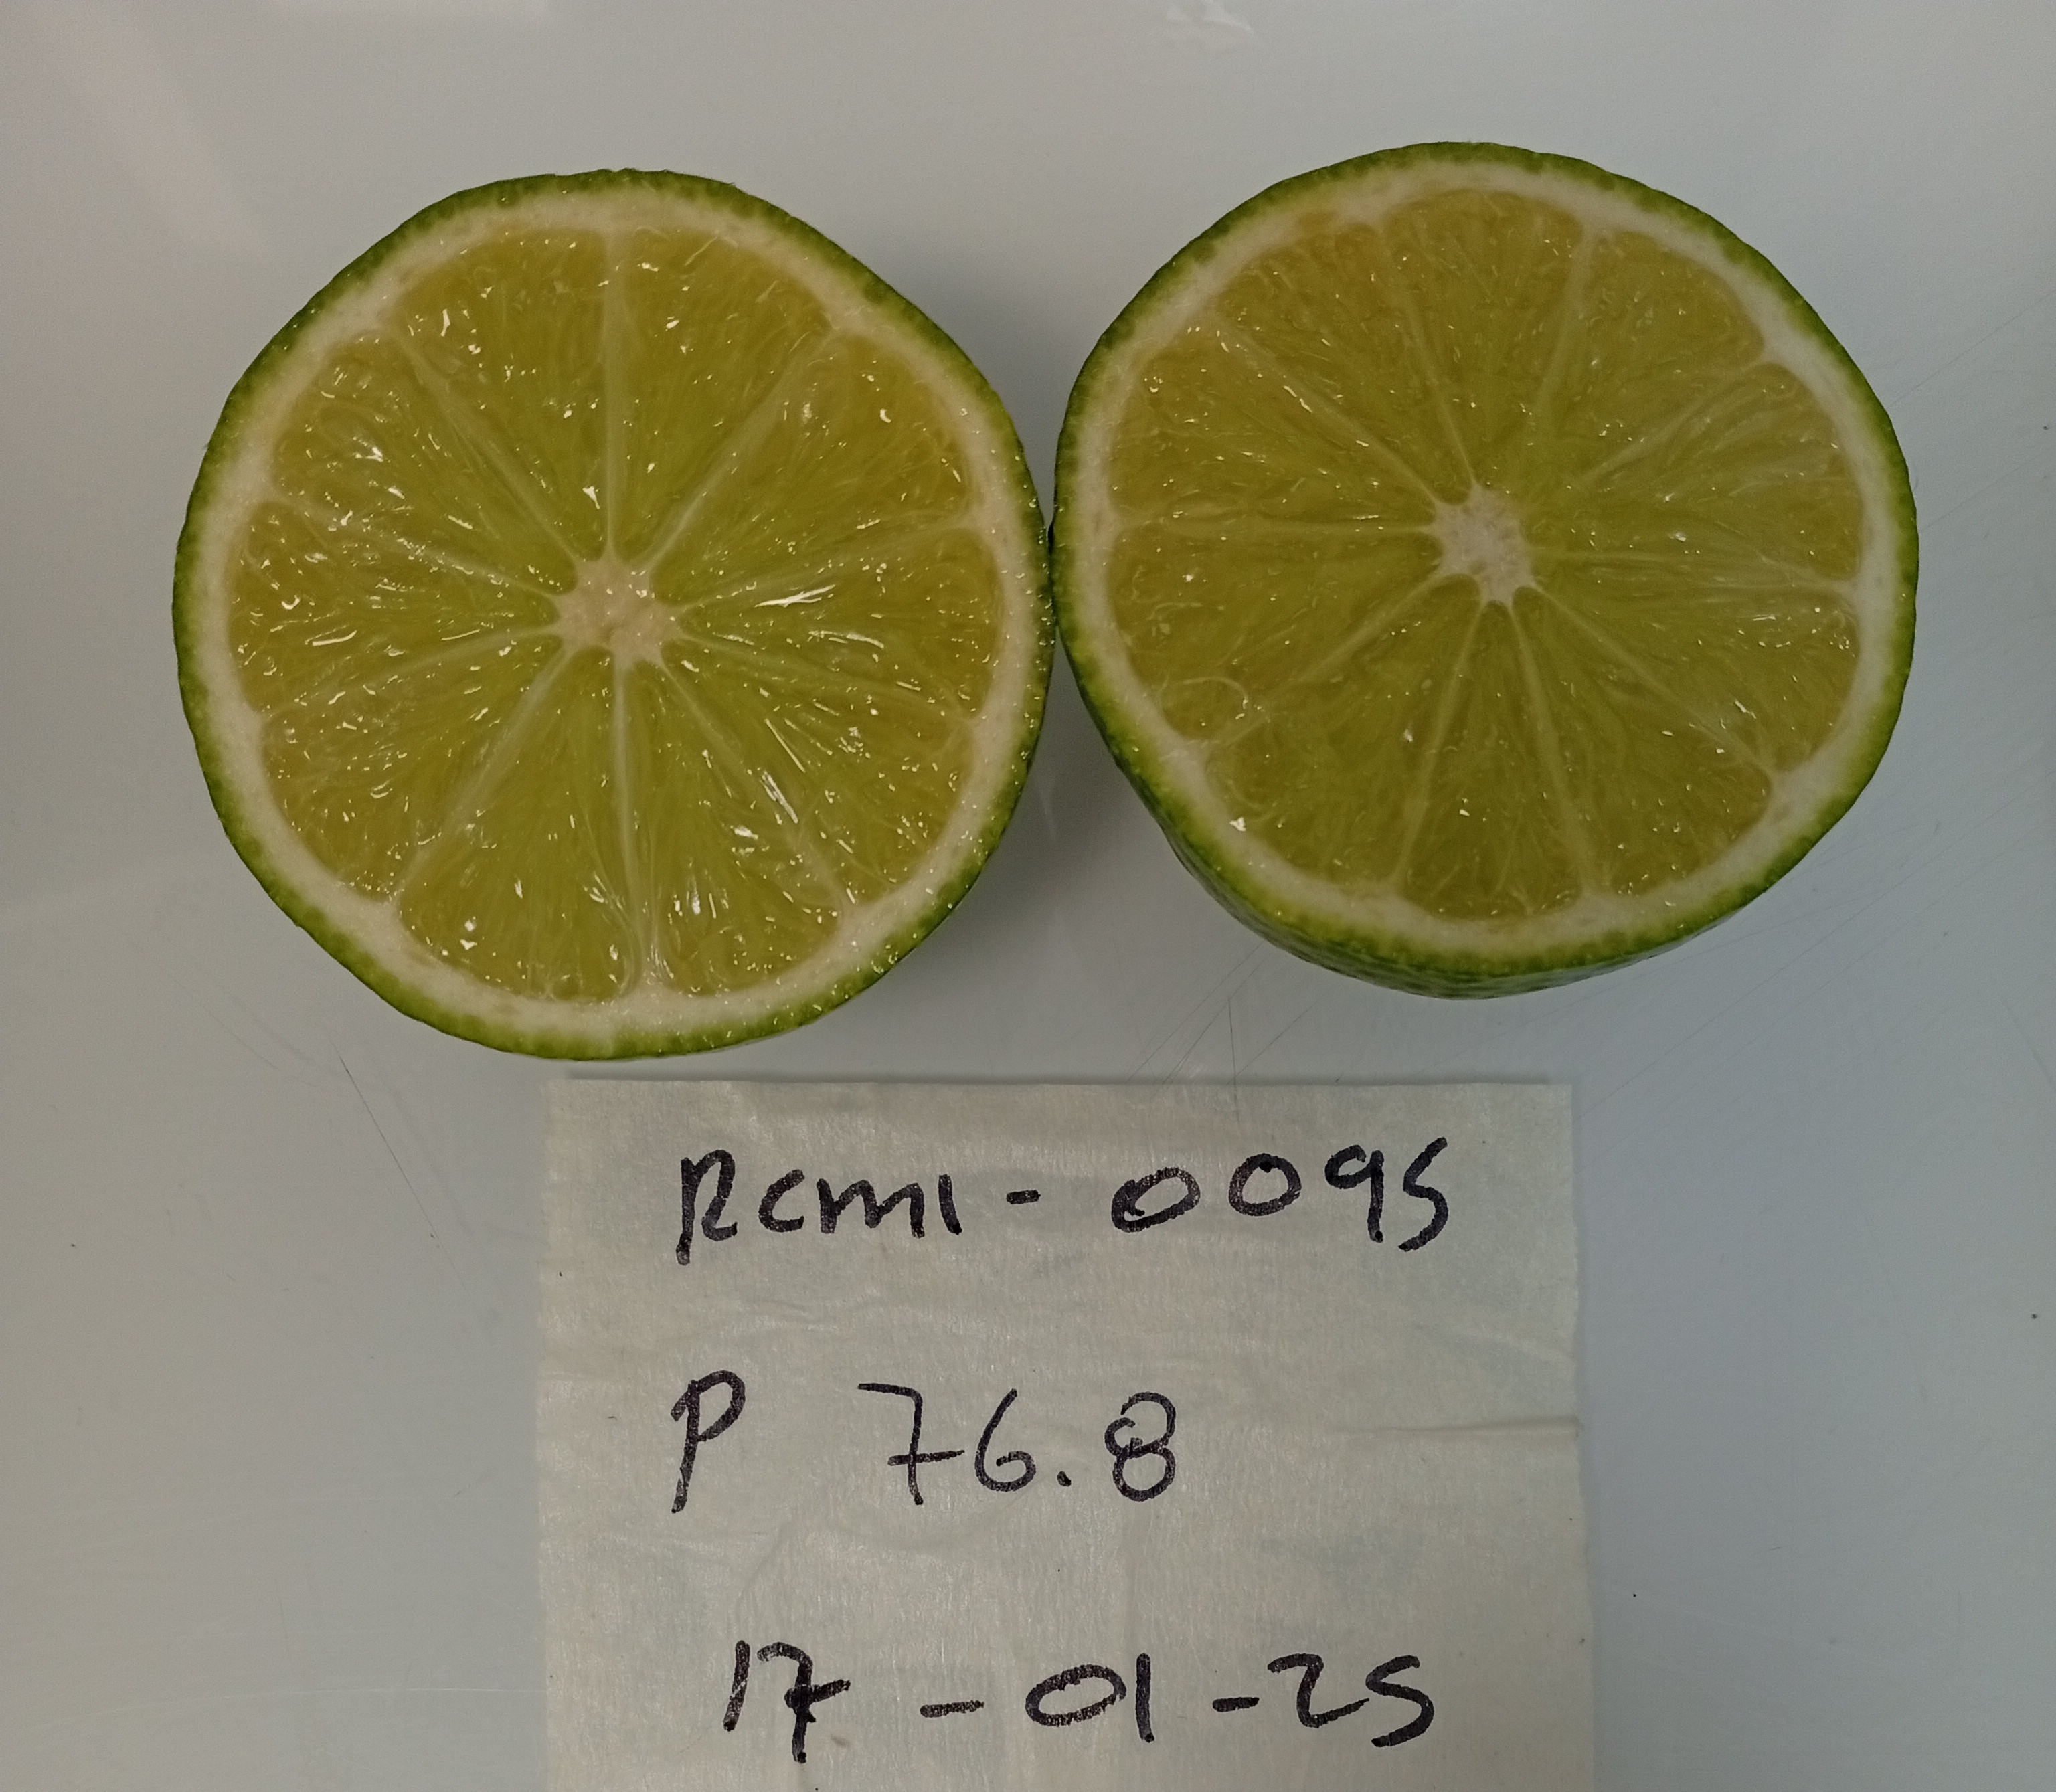 Rcm1-0095
P 76.8
17-01-25